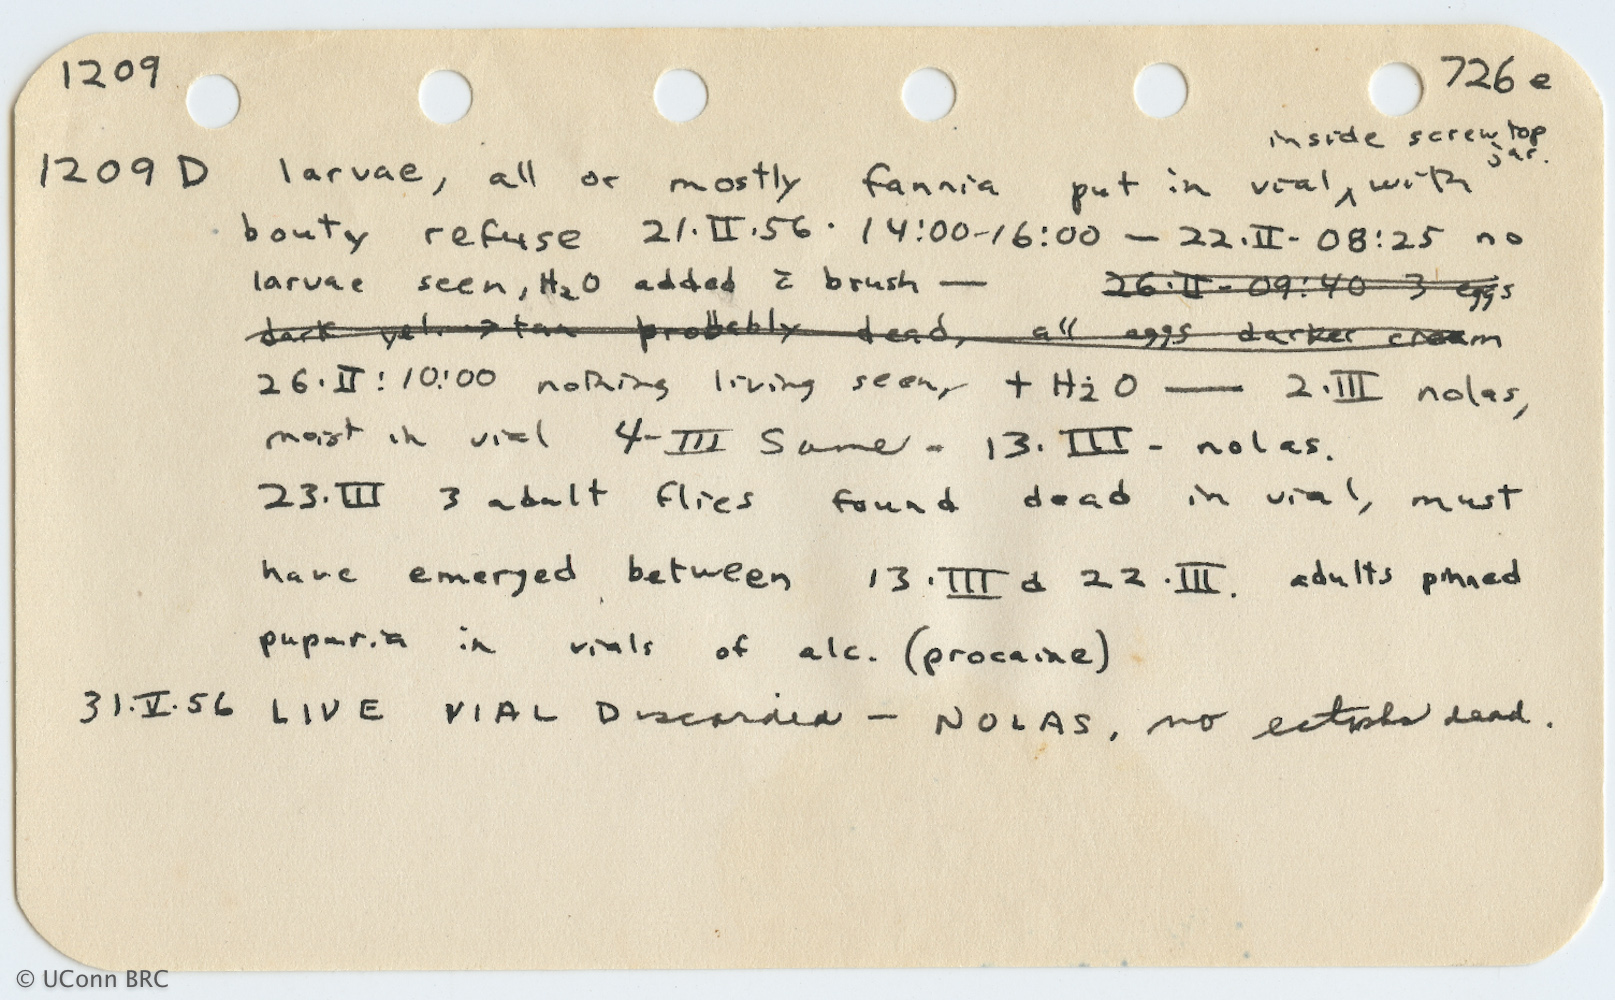 1209 726 e
inside screw top
jar.
1209 D larvae, all or mostly fannia put in vial, ^ with
bouty refuse 21.II.56. 14:00-16:00 — 22.II- 08:25 no
larvae seen, H2O added c̄ brush — 26.II- 09:40 3 eggs
dark yel. → tan probably dead, all eggs darker cream
26.II: 10:00 nothing living seen, + H2O — 2.III nolas,
moist in vial 4-III Same - 13.III - nolas.
23.III 3 adult flies found dead in vial, must
have emerged between 13.III & 22.III. adults pinned
puparia in vials of alc. (procaine)
31.V.56 LIVE VIAL Discarded - NOLAS, no dead.
© UConn BRC